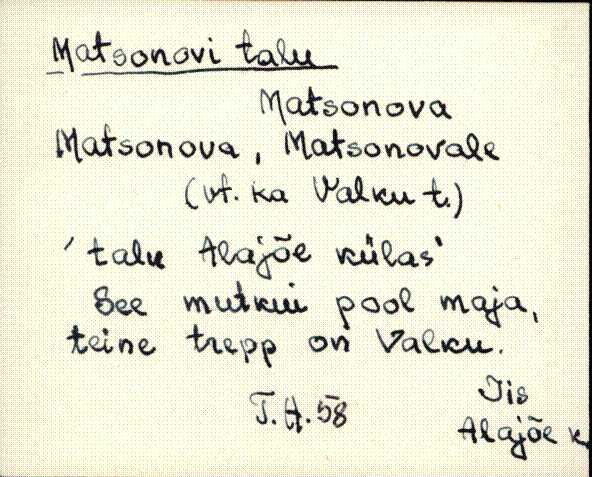 Matsonovi talu
Matsonova
Matsonova, Matsonovale
(vt. ka Valku t.)
'talu Alajõe külas'
See mutkui pool maja,
teine trepp on Valku.
T.H.58
Iis
Alajõe k.